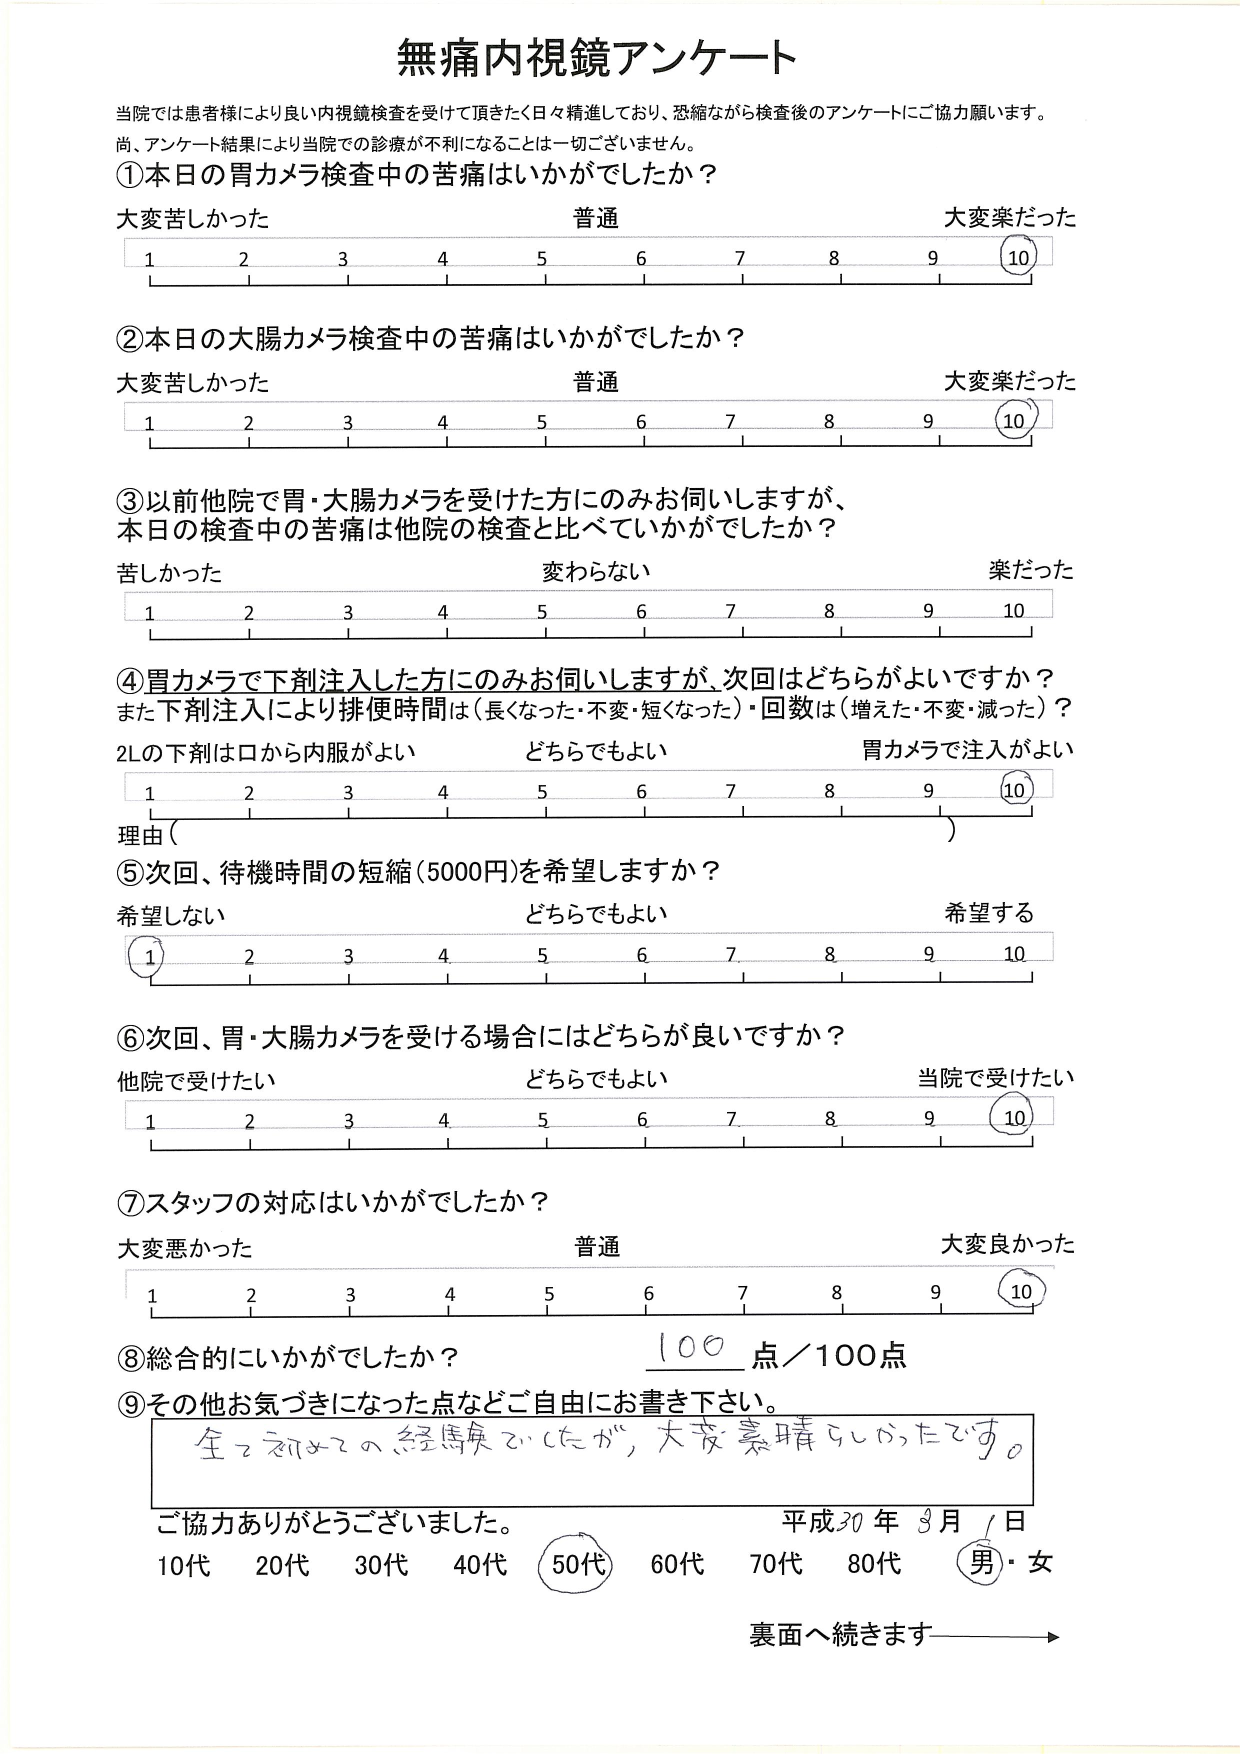 無痛内視鏡アンケート
当院では患者様により良い内視鏡検査を受けて頂きたく日々精進しており、恐縮ながら検査後のアンケートにご協力願います。
尚、アンケート結果により当院での診療が不利になることは一切ございません。
①本日の胃カメラ検査中の苦痛はいかがでしたか？
大変苦しかった 普通 大変楽だった
1 2 3 4 5 6 7 8 9 10
②本日の大腸カメラ検査中の苦痛はいかがでしたか？
大変苦しかった 普通 大変楽だった
1 2 3 4 5 6 7 8 9 10
③以前他院で胃・大腸カメラを受けた方にのみお伺いしますが、
本日の検査中の苦痛は他院の検査と比べていかがでしたか？
苦しかった 変わらない 楽だった
1 2 3 4 5 6 7 8 9 10
④胃カメラで下剤注入した方にのみお伺いしますが、次回はどちらがよいですか？
また下剤注入により排便時間は（長くなった・不変・短くなった）・回数は（増えた・不変・減った）？
2Lの下剤は口から内服がよい どちらでもよい 胃カメラで注入がよい
1 2 3 4 5 6 7 8 9 10
理由（ ）
⑤次回、待機時間の短縮（5000円）を希望しますか？
希望しない どちらでもよい 希望する
1 2 3 4 5 6 7 8 9 10
⑥次回、胃・大腸カメラを受ける場合にはどちらが良いですか？
他院で受けたい どちらでもよい 当院で受けたい
1 2 3 4 5 6 7 8 9 10
⑦スタッフの対応はいかがでしたか？
大変悪かった 普通 大変良かった
1 2 3 4 5 6 7 8 9 10
⑧総合的にいかがでしたか？ 100 点／100点
⑨その他お気づきになった点などご自由にお書き下さい。
全て初めての経験でしたが、大変素晴らしかったです。
ご協力ありがとうございました。 平成30年 3月 1日
10代 20代 30代 40代 50代 60代 70代 80代 男・女
裏面へ続きます